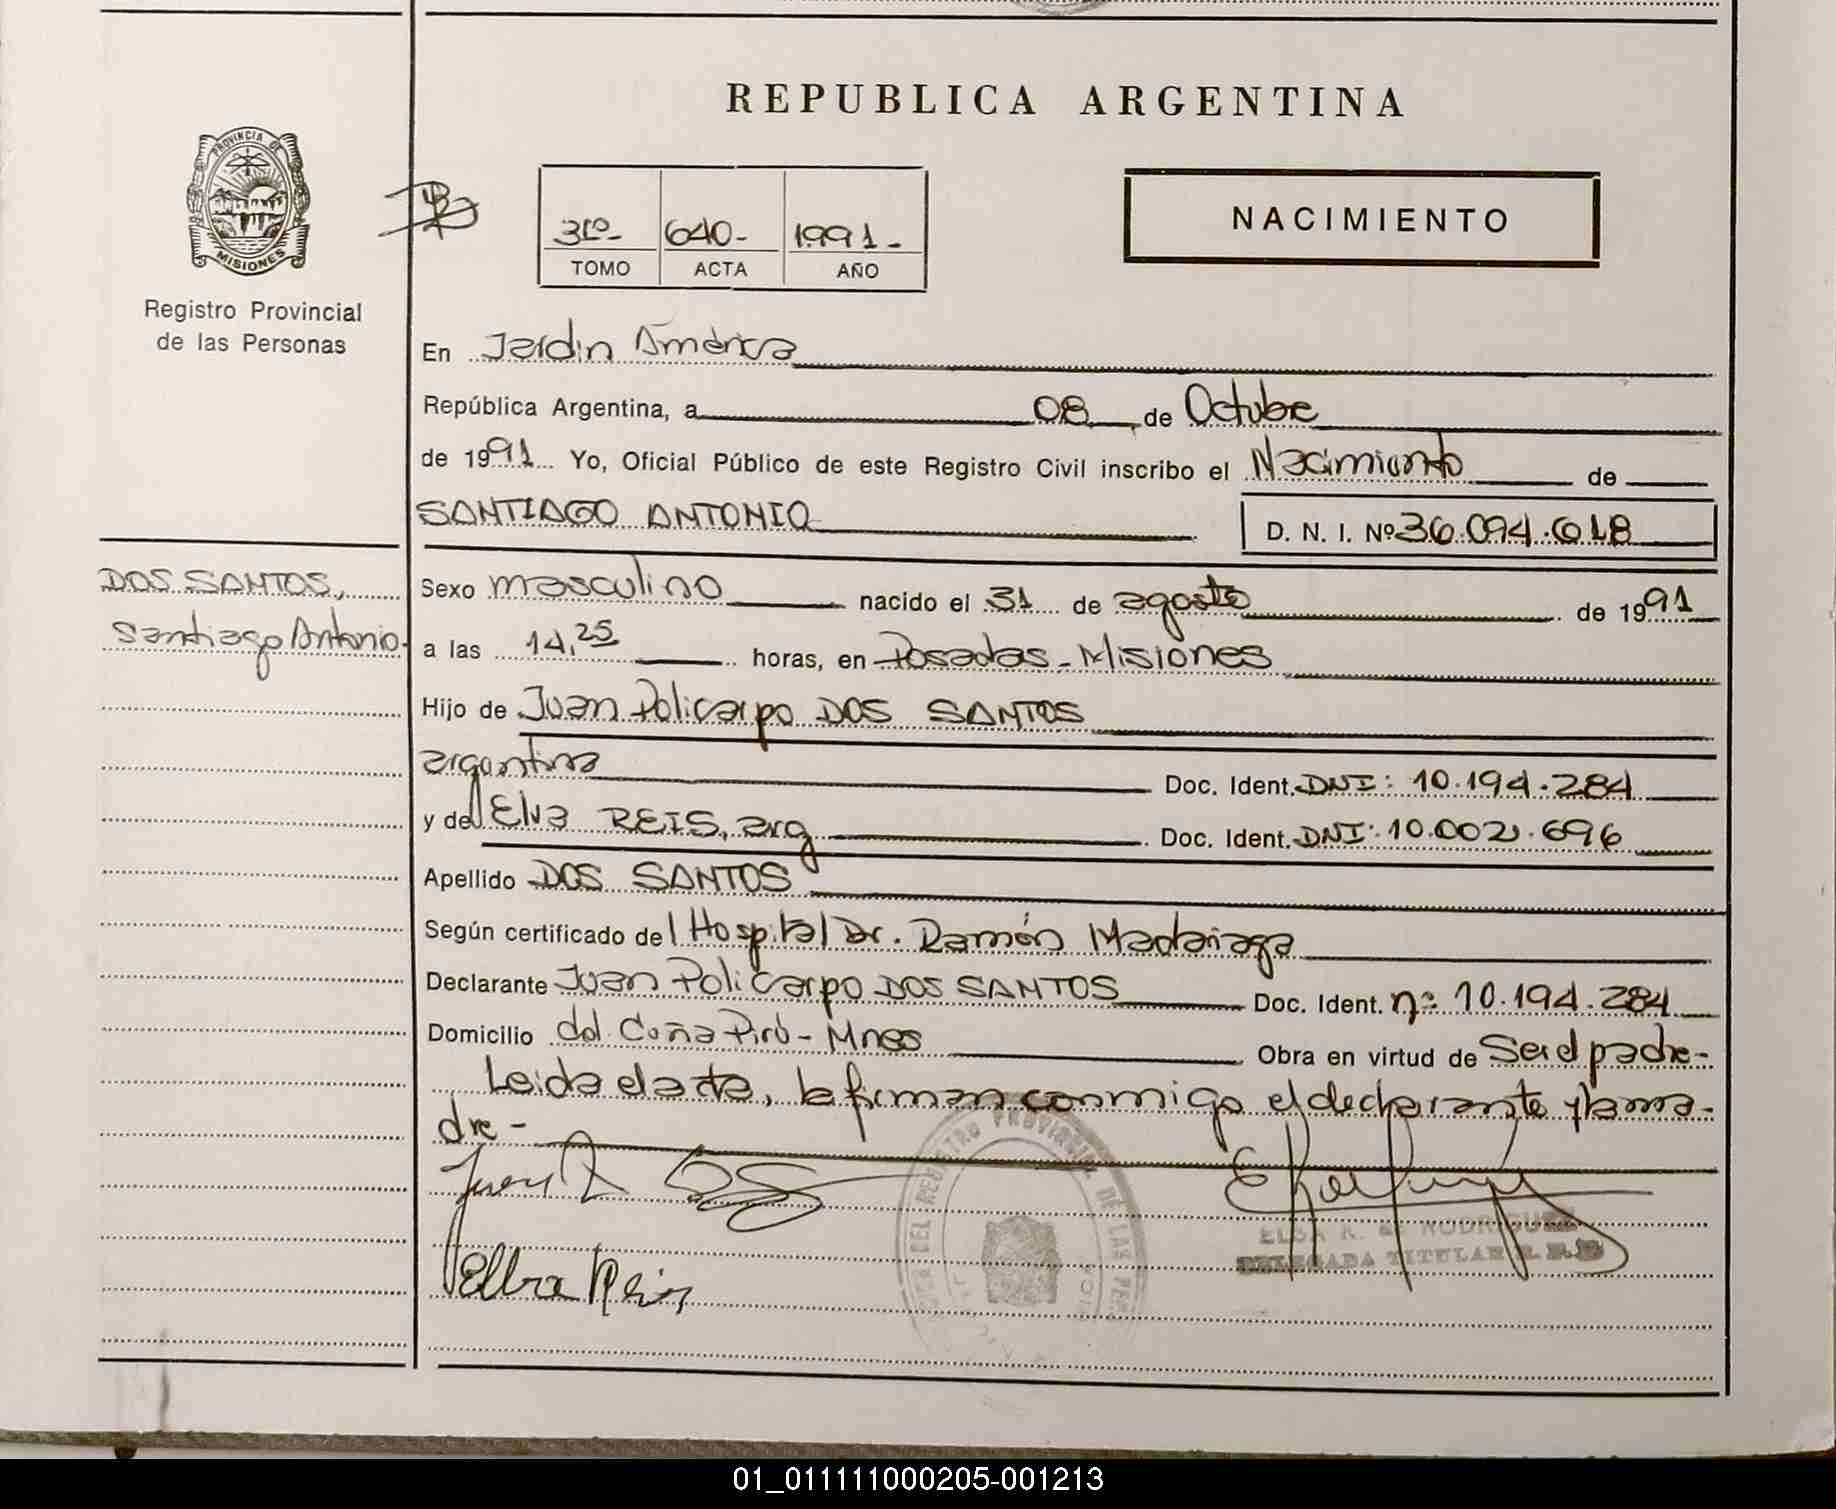 REPUBLICA ARGENTINA
PROVINCIA DE
MISIONES
Registro Provincial
de las Personas
3ro- 640- 1991-
TOMO ACTA AÑO
NACIMIENTO
En Jardin América
República Argentina, a 08 de Octubre
de 1991 Yo, Oficial Público de este Registro Civil inscribo el Nacimiento de
SANTIAGO ANTONIO D. N. I. Nº 36.094.618
DOS SANTOS,
Santiago Antonio-
Sexo masculino nacido el 31 de agosto de 1991
a las 14,25 horas, en Posadas-Misiones
Hijo de Juan Policarpo DOS SANTOS
argentina Doc. Ident. DNI: 10.194.284
y de Elva REIS, arg Doc. Ident. DNI: 10.002.696
Apellido DOS SANTOS
Según certificado del Hospital Dr. Ramón Madariaga
Declarante Juan Policarpo DOS SANTOS Doc. Ident. nº 10.194.284
Domicilio Cuña Pirú-Mnes Obra en virtud de Ser el padre-
Leida el acta, la firman conmigo el declarante y la ma-
dre-
Juan
DEL REGISTRO PROVINCIAL DE LAS PER
ELSA R. de RODRIGUEZ
DELEGADA TITULAR
Elva Reis
01_011111000205-001213